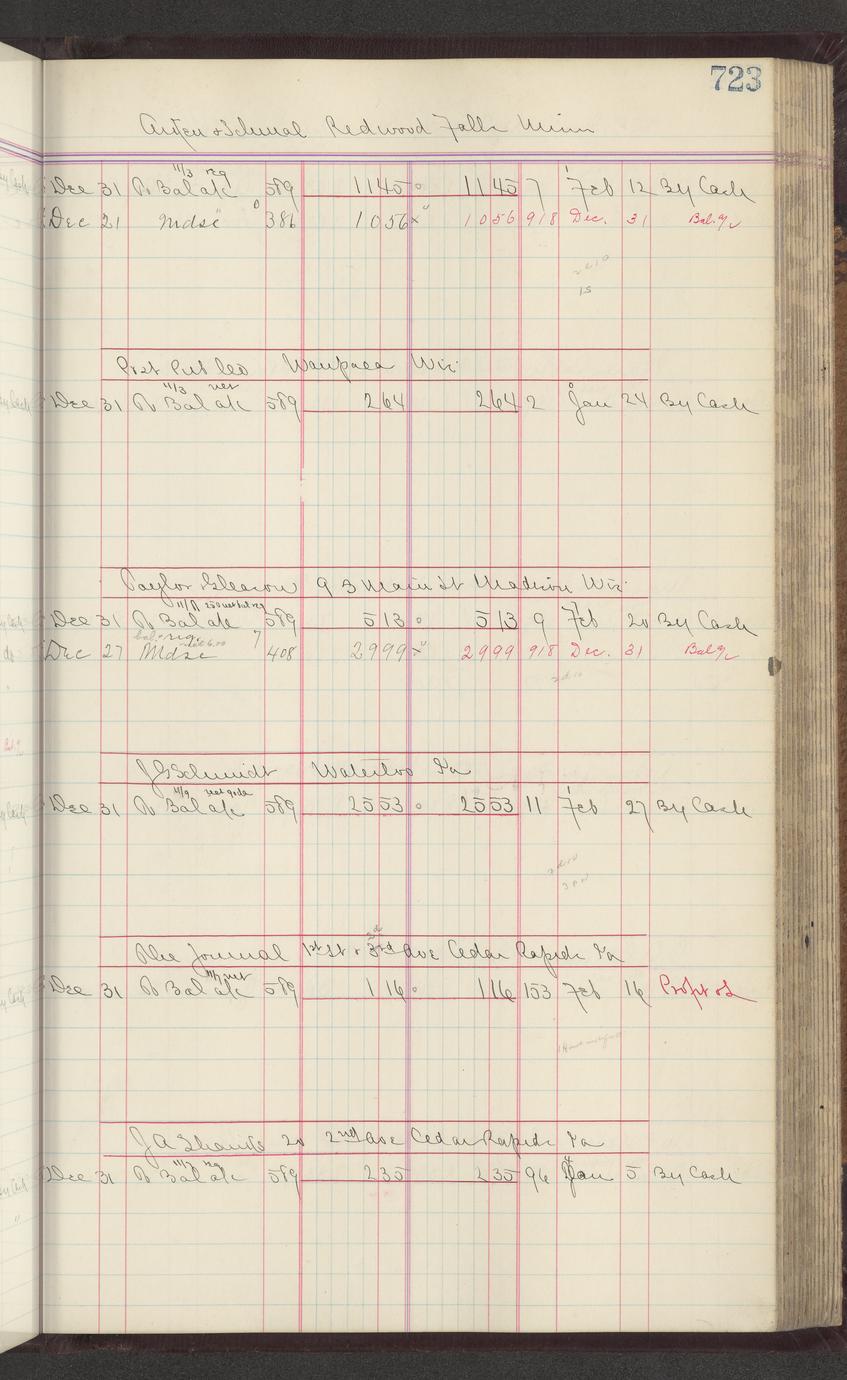 723
Redwood Falls Minn
11/3 reg
Dec 31 To Bal a/c 589 1145 1145 7 Feb 12 By Cash
Dec 21 Mdse 386 1056 1056 918 Dec. 31 Bal. a/c
15
Post Pub Co Waupaca Wis
11/3 net
Dec 31 To Bal a/c 589 264 264 2 Jan 24 By Cash
Taylor Gleason 93 Main St Madison Wis
Dec 31 To Bal a/c 589 513 513 9 Feb 20 By Cash
Dec 27 Mdse 7 408 2999 2999 918 Dec. 31 Bal a/c
J G Schmidt Waterloo Ia
11/9 net
Dec 31 To Bal a/c 589 2553 2553 11 Feb 27 By Cash
The Journal 1st St & 3rd Ave Cedar Rapids Ia
net
Dec 31 To Bal a/c 589 116 116 153 Feb 16 Prof & L
J A 20 2nd Ave Cedar Rapids Ia
Dec 31 To Bal a/c 589 235 235 96 Jan 5 By Cash